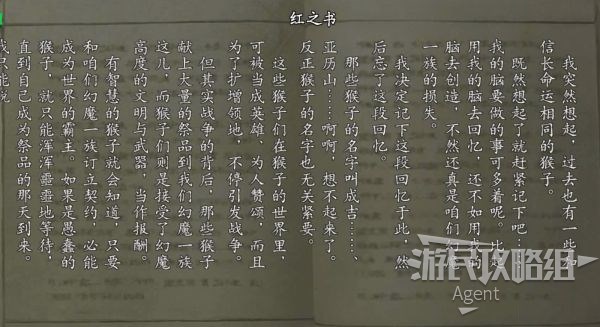 红之书
我突然想起，过去也有一些和
信长命运相同的猴子。
既然想起了就赶紧记下吧…
我的脑要做的事可多着呢。比起
用我的脑去回忆，还不如用我的
脑去创造，不然还真是咱们幻
一族的损失。
我决定记下这段回忆于此，然
后忘了这段回忆。
那些猴子的名字叫成吉……、
亚历山……啊啊，想不起来了。
反正猴子的名字也无关紧要。
这些猴子们在猴子的世界里，
可被当成英雄、为人赞颂，而且
为了扩增领地，不停引发战争。
但其实战争的背后，那些猴子
献上大量的祭品到我们幻魔一族
这儿，而猴子们则是接受了幻魔
高度的文明与武器，当作报酬。
有智慧的猴子就会知道，只要
和咱们幻魔一族订立契约，必能
成为世界的霸主。如果是愚蠢的
猴子，就只能浑浑噩噩地等待，
直到自己成为祭品的那天到来。
我只能说
游民攻略组
Agent